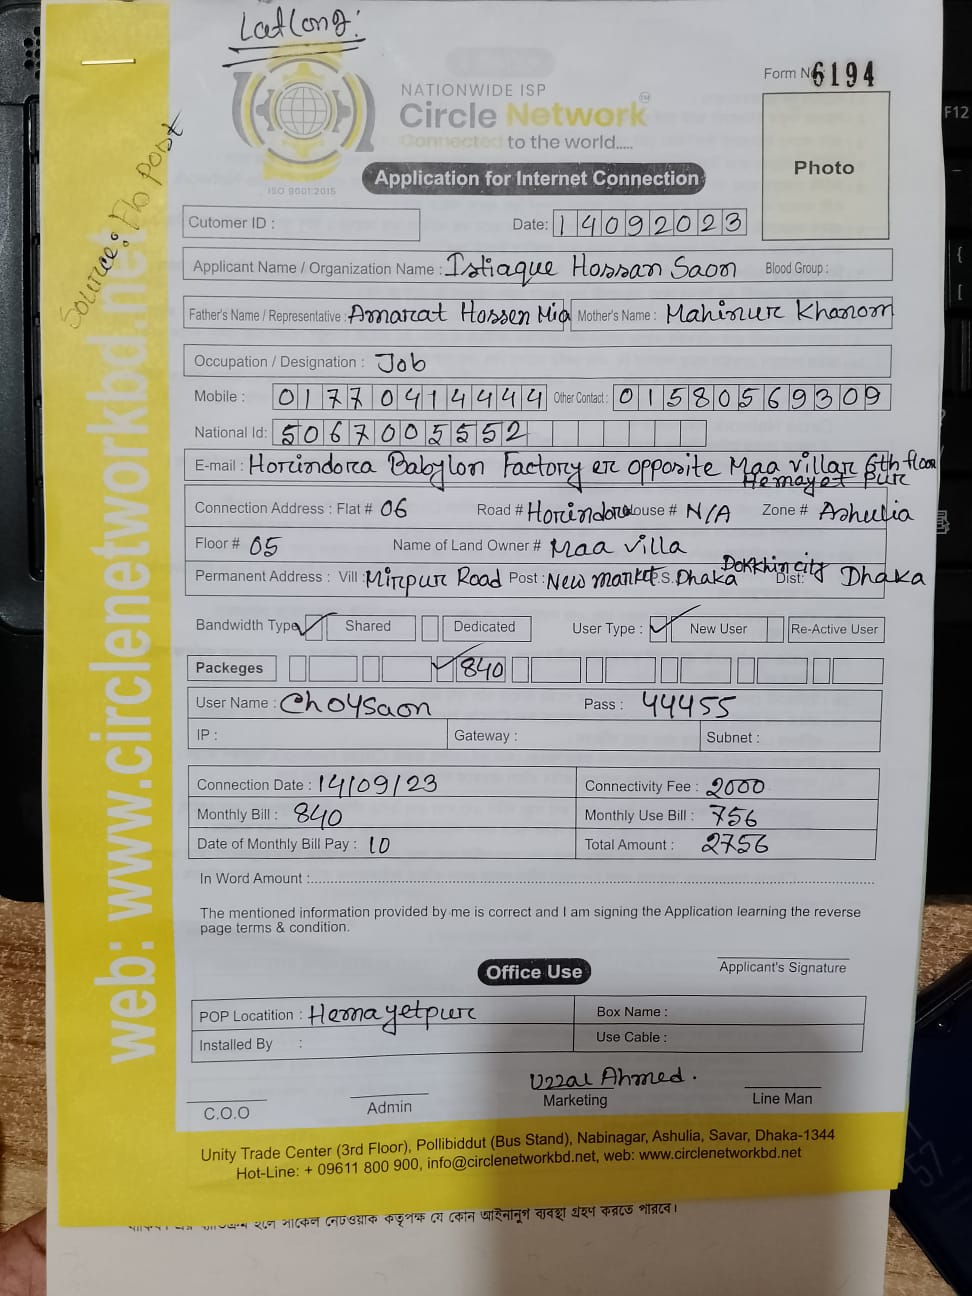 Latlong:
Form No 6194
NATIONWIDE ISP
Circle Network
Connected to the world.....
ISO 9001:2015
Application for Internet Connection
Photo
Source: Flo post
web: www.circlenetworkbd.net
Cutomer ID :
Date: 14092023
Applicant Name / Organization Name : Istiaque Hossan Saon Blood Group :
Father's Name / Representative : Amarat Hossen Mia Mother's Name : Mahinur Khanom
Occupation / Designation : Job
Mobile : 01770414444 Other Contact : 01580569309
National Id: 5067005552
E-mail : Horindora Babylon Factory er opposite Maa villar 6th floor
Hemayet Pur
Connection Address : Flat # 06 Road # Horindora House # N/A Zone # Ashulia
Floor # 05 Name of Land Owner # Maa villa
Permanent Address : Vill : Mirpur Road Post : New market P.S. Dhaka Dokkhin city Dist: Dhaka
Bandwidth Type Shared Dedicated User Type : New User Re-Active User
Packeges 840
User Name : Choysaon Pass : 44455
IP : Gateway : Subnet :
Connection Date : 14/09/23 Connectivity Fee : 2000
Monthly Bill : 840 Monthly Use Bill : 756
Date of Monthly Bill Pay : 10 Total Amount : 2756
In Word Amount :
The mentioned information provided by me is correct and I am signing the Application learning the reverse
page terms & condition.
Applicant's Signature
Office Use
POP Locatition : Hemayetpur Box Name :
Installed By : Use Cable :
Uzzal Ahmed.
C.O.O Admin Marketing Line Man
Unity Trade Center (3rd Floor), Pollibiddut (Bus Stand), Nabinagar, Ashulia, Savar, Dhaka-1344
Hot-Line: + 09611 800 900, info@circlenetworkbd.net, web: www.circlenetworkbd.net
হলে সার্কেল নেটওয়ার্ক কতৃপক্ষ যে কোন আইনানুগ ব্যবস্থা গ্রহণ করতে পারবে।
F12